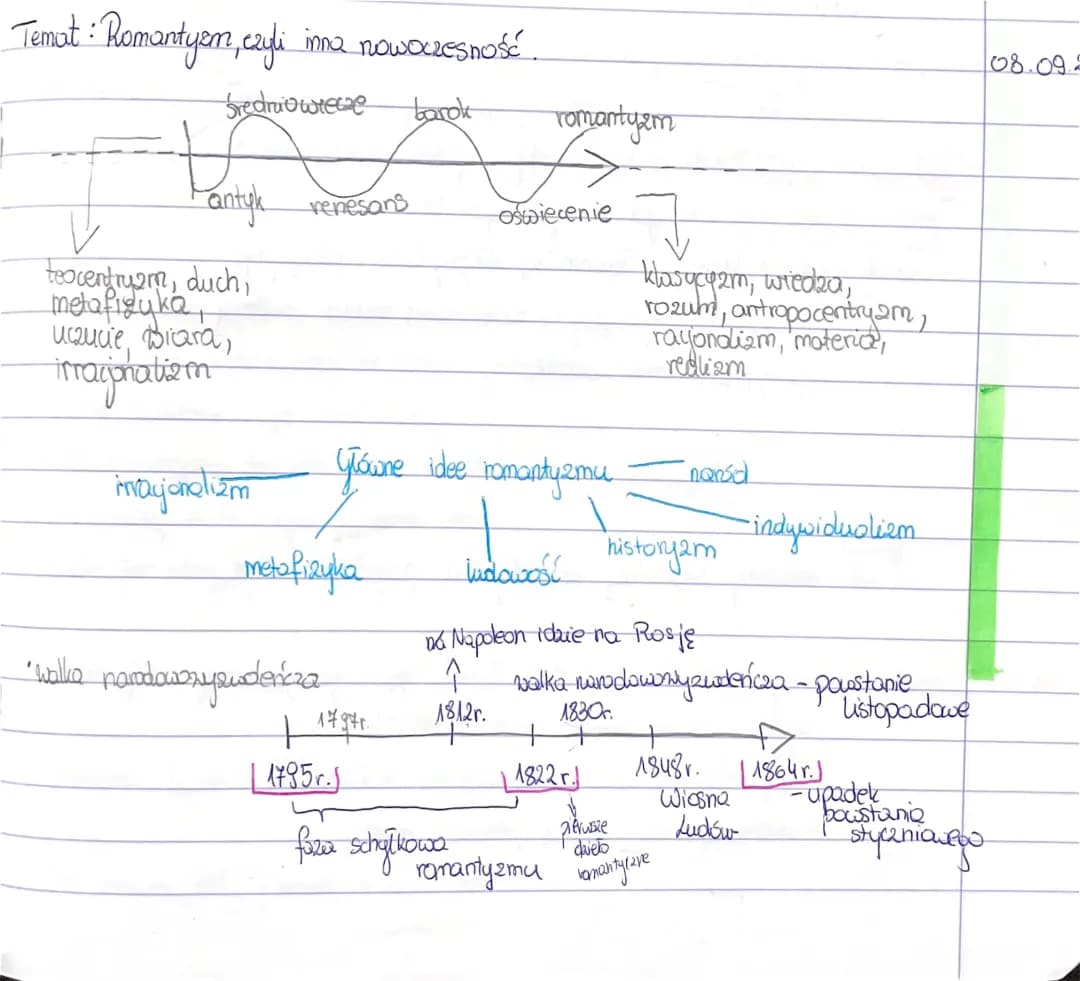 Temat: Romantyzm, czyli inna nowoczesność.
08.09.
średniowiecze barok romantyzm
antyk renesans oświecenie
teocentryzm, duch,
metafizyka,
uczucie, wiara,
irracjonalizm
klasycyzm, wiedza,
rozum, antropocentryzm,
racjonalizm, materia,
realizm
Główne idee romantyzmu
irracjonalizm
naród
indywidualizm
historyzm
metafizyka
ludowość
Napoleon idzie na Rosję
walka narodowowyzwoleńcza
walka narodowowyzwoleńcza - powstanie
listopadowe
1797r. 1812r. 1830r.
1795r. 1822r. 1848r. 1864r.
Wiosna
Ludów
- upadek
powstania
styczniowego
pierwsze
dzieło
romantyczne
faza schyłkowa
romantyzmu